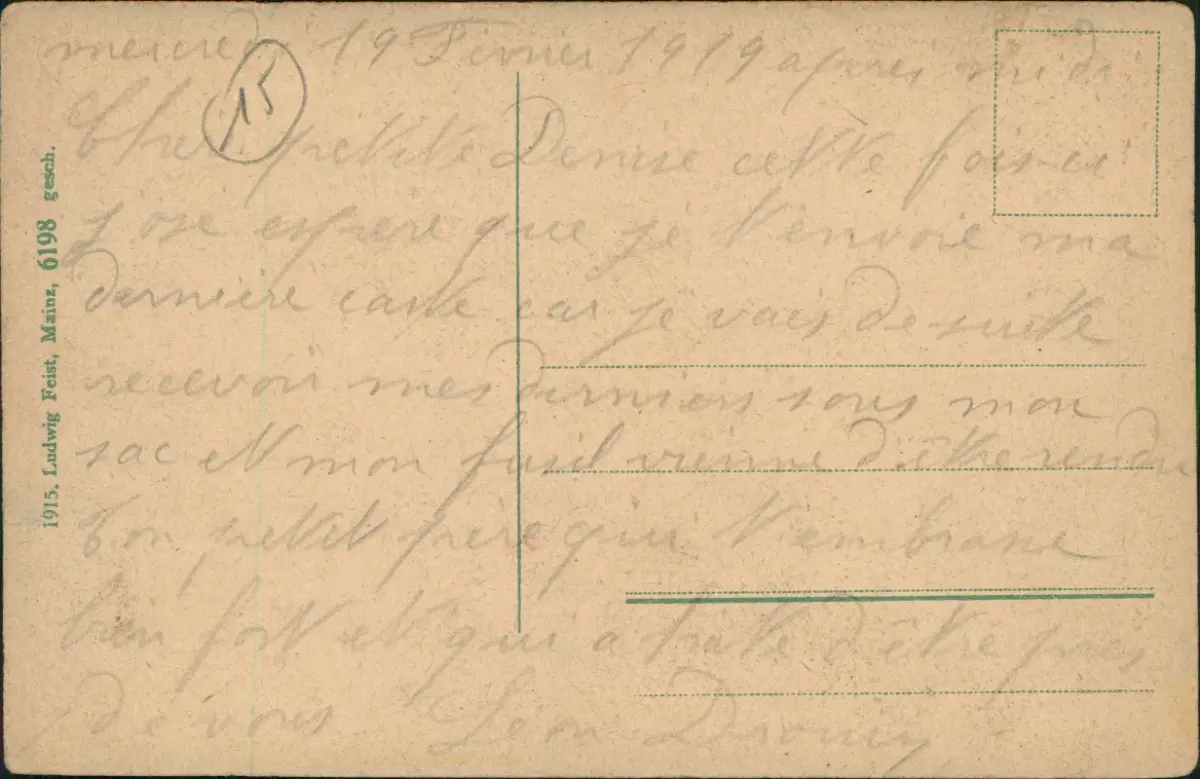 mercredi 19 Février 1919 après midi
15
Chère petite Denise cette fois-ci
j'ose espére que je t'envoie ma
dernière carte car je vais de suite
recevoir mes derniers sous mon
sac et mon fusil vienne d'être rendu
Ton petit père qui t'embrasse
bien fort et qui a hate d'être près
de vous Léon Drouin
1915. Ludwig Feist, Mainz, 6198 gesch.